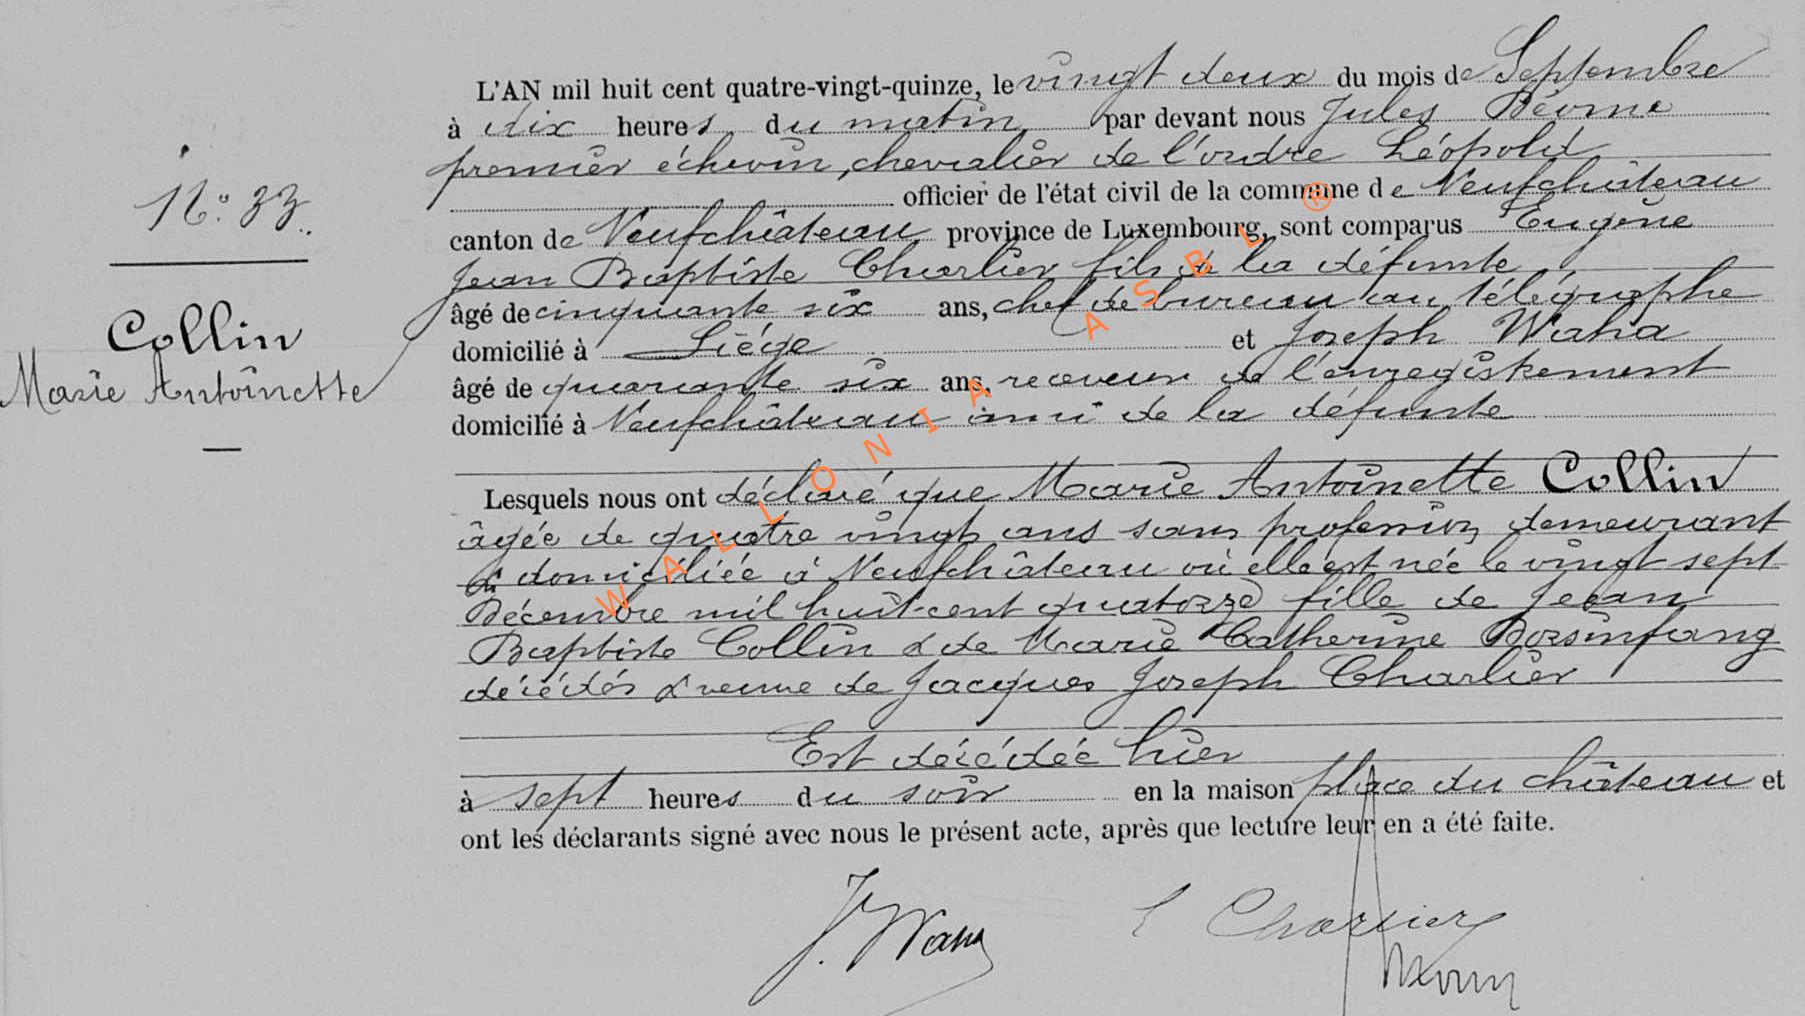 L'AN mil huit cent quatre-vingt-quinze, le vingt deux du mois de Septembre
à dix heures du matin par devant nous Jules
premier échevin, chevalier de l'ordre Léopold
officier de l'état civil de la commune de Neufchâteau
canton de Neufchâteau province de Luxembourg, sont comparus Eugène
Jean Baptiste Charlier fils de la défunte
âgé de cinquante six ans, chef de bureau au télégraphe
domicilié à Liége et Joseph Waha
âgé de quarante six ans, receveur de l'enregistrement
domicilié à Neufchâteau ami de la défunte
Lesquels nous ont déclaré que Marie Antoinette Collin
âgée de quatre vingt ans sans profession, demeurant
& domiciliée à Neufchâteau où elle est née le vingt sept
Décembre mil huit-cent quatorze fille de Jean
Baptiste Collin & de Marie Catherine Borsinfang
décédés & veuve de Jacques Joseph Charlier
Est décédée hier
à sept heures du soir en la maison place du château et
ont les déclarants signé avec nous le présent acte, après que lecture leur en a été faite.
J. Waha E Charlier
N° 33
Collin
Marie Antoinette
WALLONIA ASBL ®